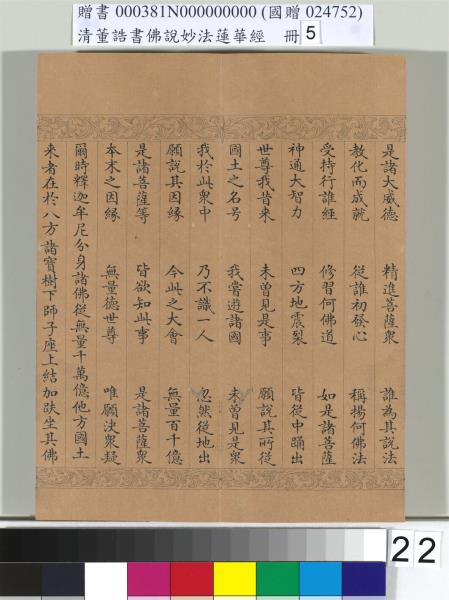 贈書 000381N000000000 (國贈 024752)
清董誥書佛說妙法蓮華經 冊 5
是諸大威德 精進菩薩衆 誰為其說法
教化而成就 從誰初發心 稱揚何佛法
受持行誰經 修習何佛道 如是諸菩薩
神通大智力 四方地震裂 皆從中踊出
世尊我昔來 未曾見是事 願說其所從
國土之名号 我嘗遊諸國 未曾見是衆
我於此衆中 乃不識一人 忽然從地出
願說其因緣 今此之大會 無量百千億
是諸菩薩等 皆欲知此事 是諸菩薩衆
本末之因緣 無量德世尊 唯願決衆疑
爾時釋迦牟尼分身諸佛從無量千萬億他方國土
来者在於八方諸寶樹下師子座上結加趺坐其佛
22